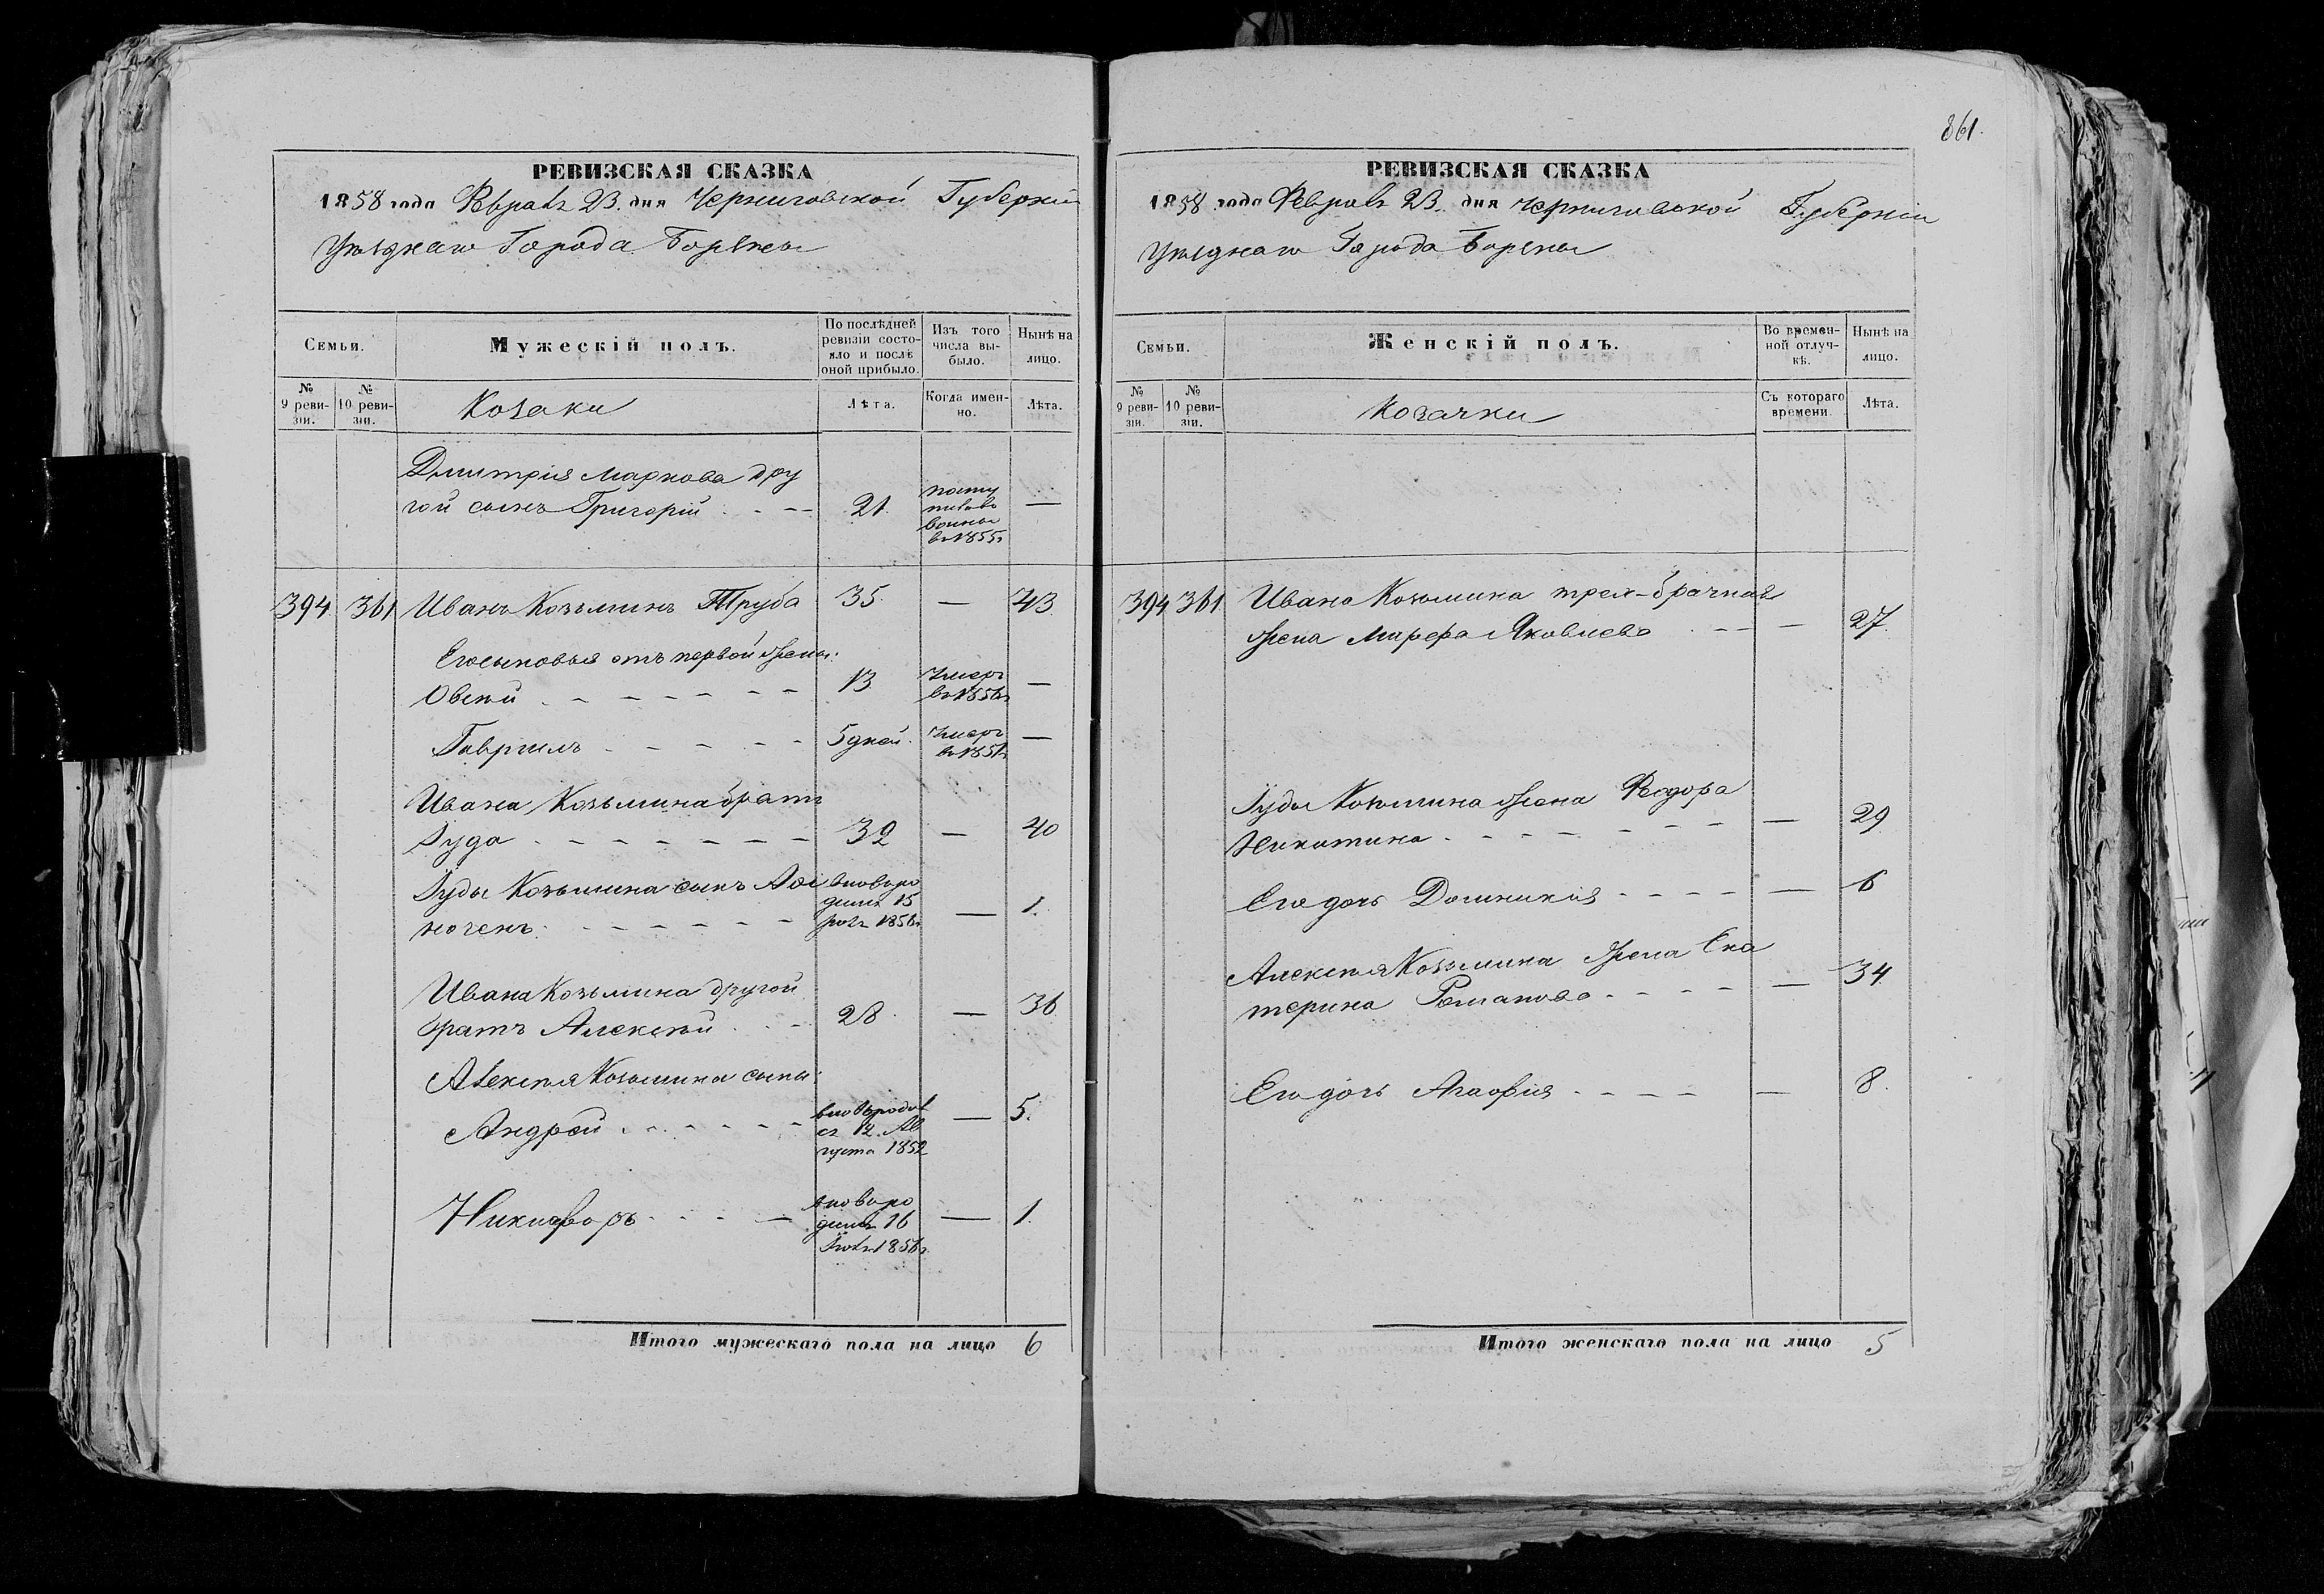 861.
РЕВИЗСКАЯ СКАЗКА
1858 года Февраля 23. дня Черниговской Губерніи
Уѣзднаго Города Борзны
Семьи.
Мужескій полъ.
По послѣдней ревизіи состояло и послѣ оной прибыло.
Изъ того числа выбыло.
Нынѣ на лицо.
№ 9 ревизіи.
№ 10 ревизіи.
Козаки
Лѣта.
Когда именно.
Лѣта.
Дмитрія Маркова дру
гой сынъ Григорій - - - 21. —
в 1855г
394 361 Иванъ Козьминъ Труба 35. — 43
Его сыновья отъ первой жены:
Овсѣй - - - - - - 13 Умеръ в 1856г —
Гаврiилъ - - - - - 5 дней. Умеръ в 1851г —
Ивана Козьмина братъ
Іуда - - - - - - - 32 — 40
Іуды Козьмина сынъ
вновь родился 15 1856г — 1.
Ивана Козьмина другой
братъ Алексѣй - - - 28. — 36
Алексѣя Козьмина сыны:
Андрей - - - - - - вновь родился 12 Августа 1852 — 5.
Никифоръ - - - - — вновь родился 16 1856г — 1.
Итого мужескаго пола на лицо 6
РЕВИЗСКАЯ СКАЗКА
1858 года Февраля 23. дня Черниговской Губерніи
Уѣзднаго Города Борзны
Семьи.
Женскій полъ.
Во временной отлучкѣ.
Нынѣ на лицо.
№ 9 ревизіи.
№ 10 ревизіи.
Козачки
Съ котораго времени.
Лѣта.
394 361 Ивана Козьмина трех-брачная
жена Марфа Яковлева - - - — 27.
Іуды Козьмина жена Федора
Никитина - - - - - - - — 29
Его дочь Домникія - - - - — 6
Алексѣя Козьмина жена Ека
терина Романова - - - - — 34.
Его дочь Агафія - - - - — 8.
Итого женскаго пола на лицо 5